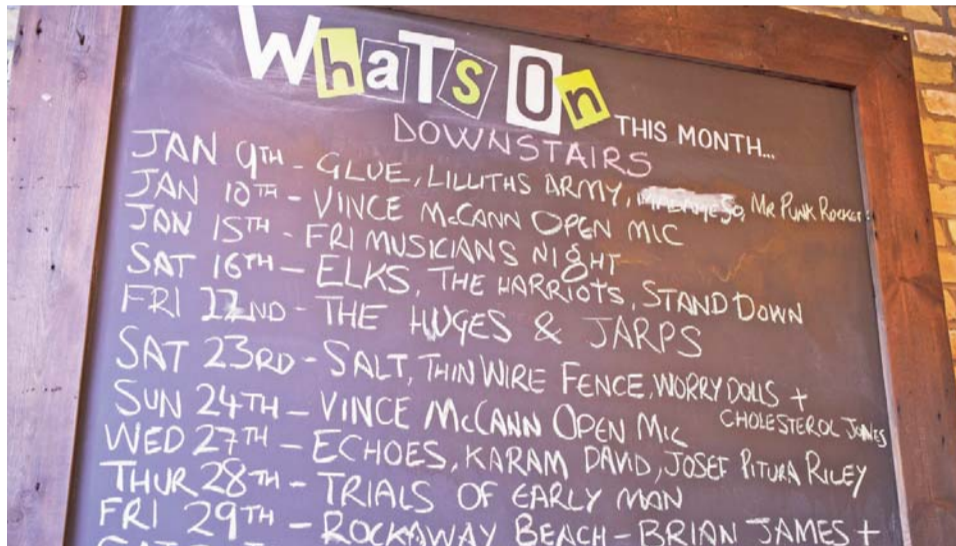 WhaTs On
THIS MONTH...
DOWNSTAIRS
JAN 9TH - GLUE, LILLITHS ARMY, MR PUNK ROCKER
JAN 10TH - VINCE McCANN OPEN MIC
JAN 15TH - FRI MUSICIANS NIGHT
SAT 16TH - ELKS, THE HARRIOTS, STAND DOWN
FRI 22ND - THE HUGES & JARPS
SAT 23RD - SALT, THIN WIRE FENCE, WORRY DOLLS +
CHOLESTEROL JONES
SUN 24TH - VINCE McCANN OPEN MIC
WED 27TH - ECHOES, KARAM DAVID, JOSEF PITURA RILEY
THUR 28TH - TRIALS OF EARLY MAN
FRI 29TH - ROCKAWAY BEACH - BRIAN JAMES +